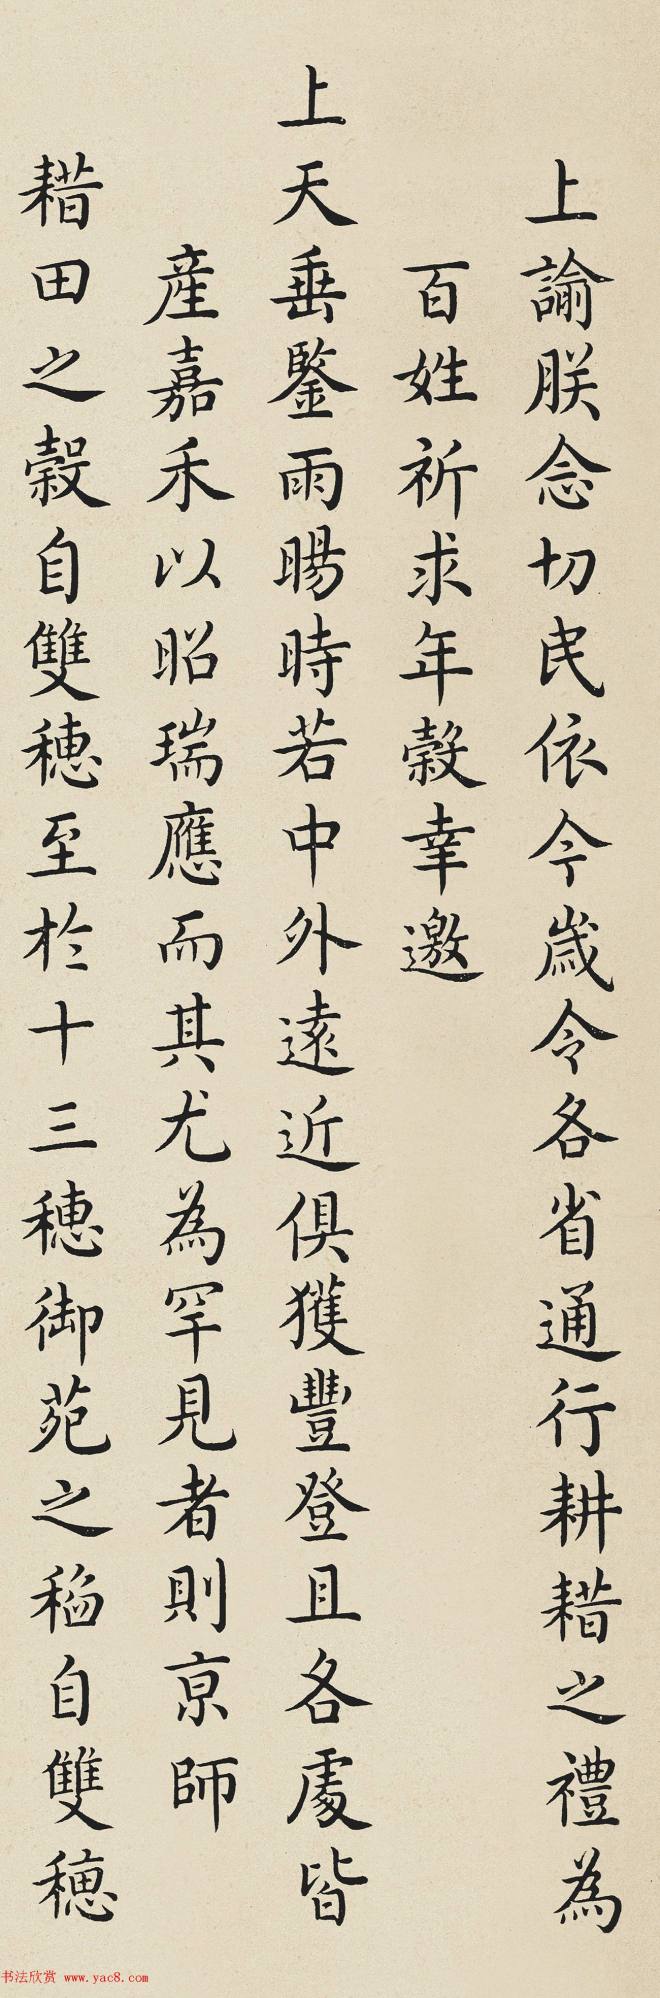 上諭朕念切民依今歲令各省通行耕耤之禮為
百姓祈求年穀幸邀
上天垂鑒雨暘時若中外遠近俱獲豐登且各處皆
産嘉禾以昭瑞應而其尤為罕見者則京師
耤田之穀自雙穗至於十三穗御苑之稻自雙穗
书法欣赏 www.yac8.com